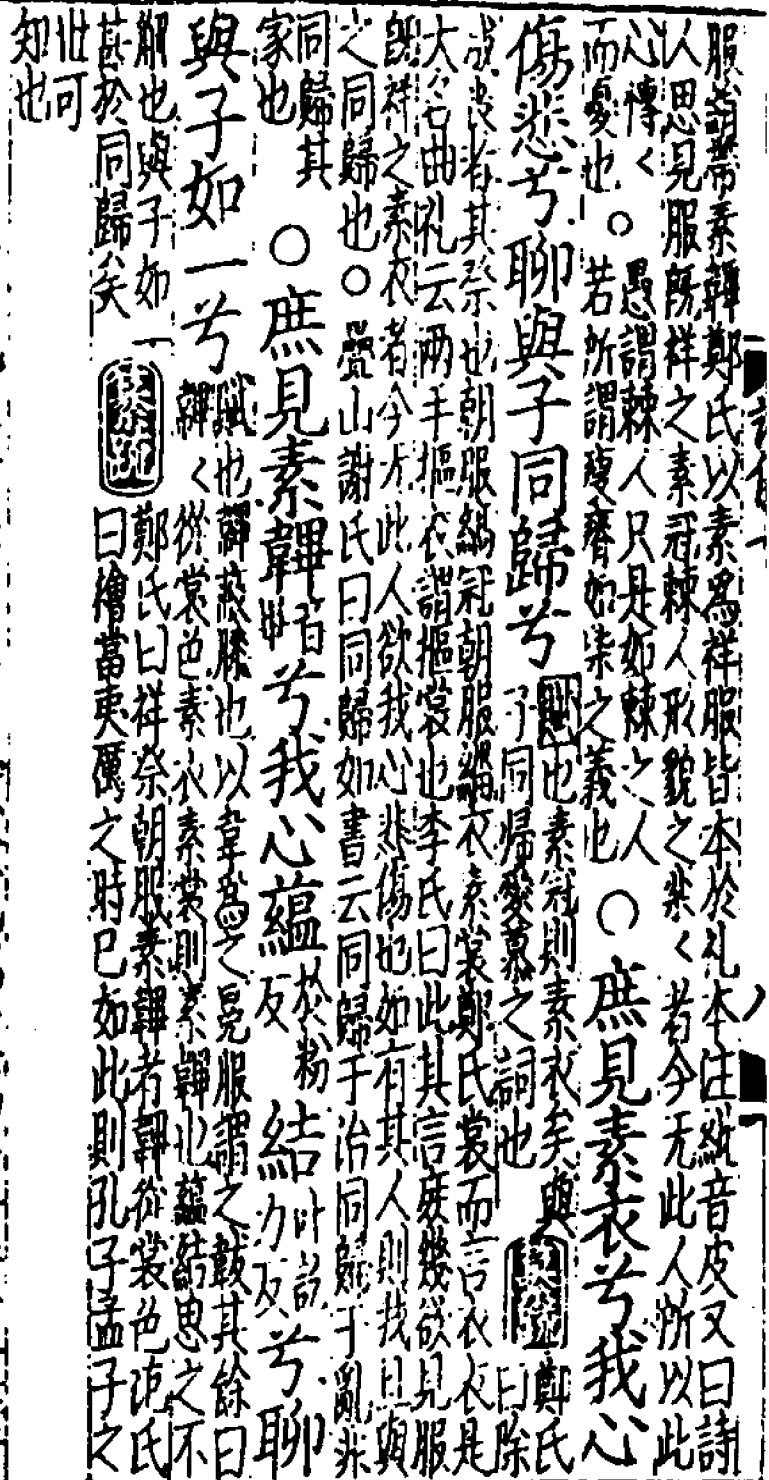 服謂帶素韠鄭氏以素爲祥服皆本於礼本注紕音皮又曰詩
人思見服旣祥之素冠棘人形貌之欒〱者今无此人所以此
心慱〱愚謂棘人只是如棘之人
而憂也○若所謂瘦瘠如柴之義也
○庶見素衣兮我心
傷悲兮聊與子同歸兮
賦也素冠則素衣矣與
子同歸愛慕之詞也
鄭氏
曰除
成喪者其祭也朝服縞冠朝服緇衣素裳鄭氏裳而言衣衣是
大名曲礼云兩手摳衣謂摳裳也李氏曰此其言庶幾欲見服
旣祥之素衣者今无此人欲我心悲傷也如有其人則我且與
之同歸也○疊山謝氏曰同歸如書云同歸于治同歸于亂非
同歸其
家也
○庶見素韠音畢兮我心蘊於粉反結叶訖力反兮聊
與子如一兮
賦也韠蔽膝也以韋爲之冕服謂之韍其餘曰
韠〱從裳色素衣素裳則素韠也蘊結思之不
解也與子如一
甚於同歸矣
鄭氏曰祥祭朝服素韠者韠從裳色范氏
曰檜當夷厲之時已如此則孔子孟子之
世可
知也